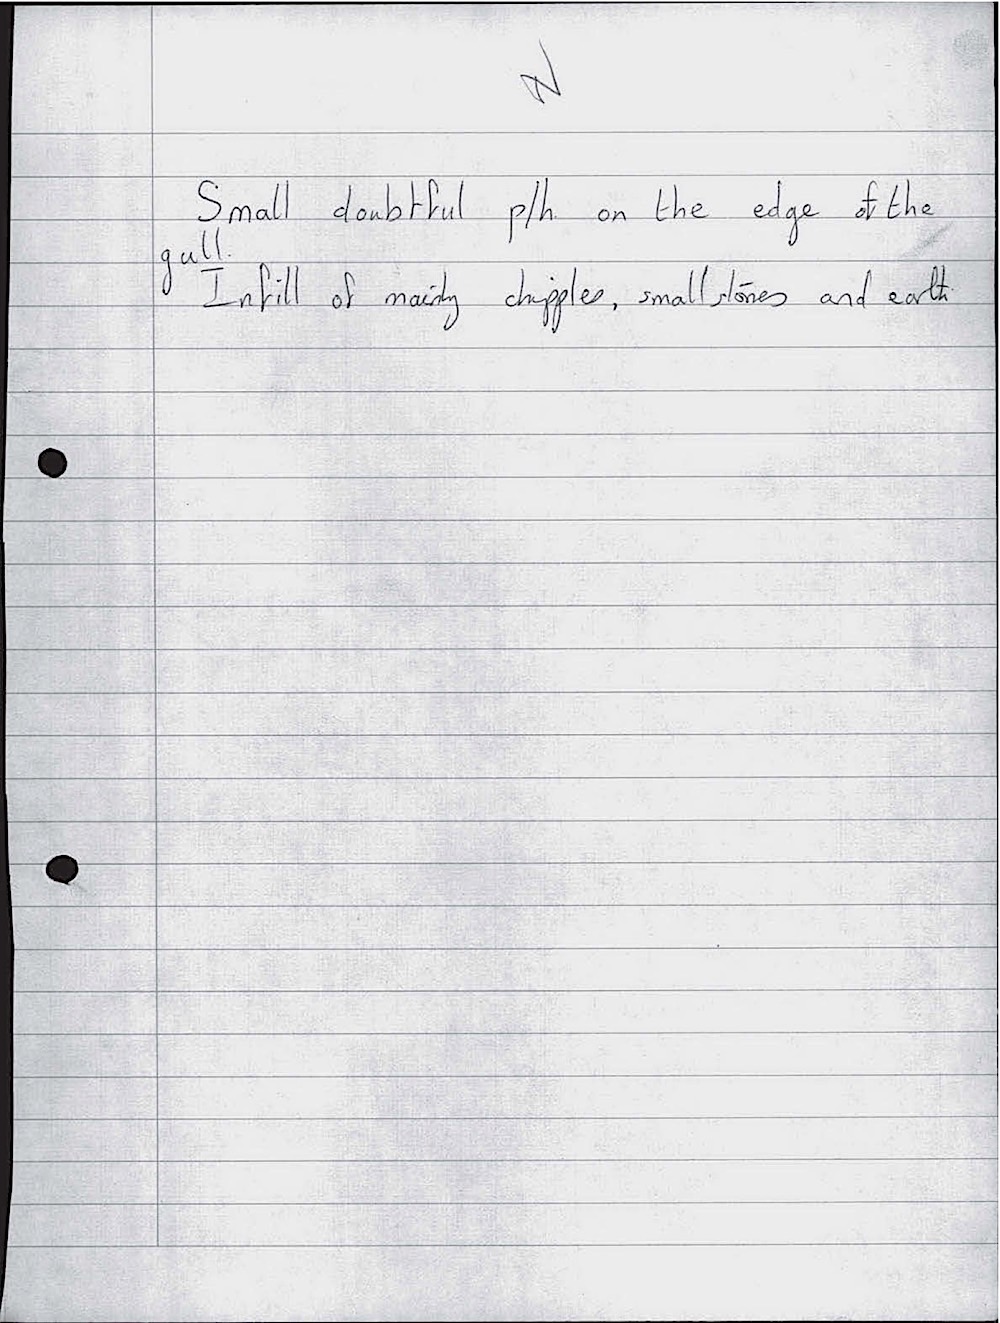 N
Small doubtful p/h. on the edge of the
gull.
Infill of mainly chipples, small stones and earth.